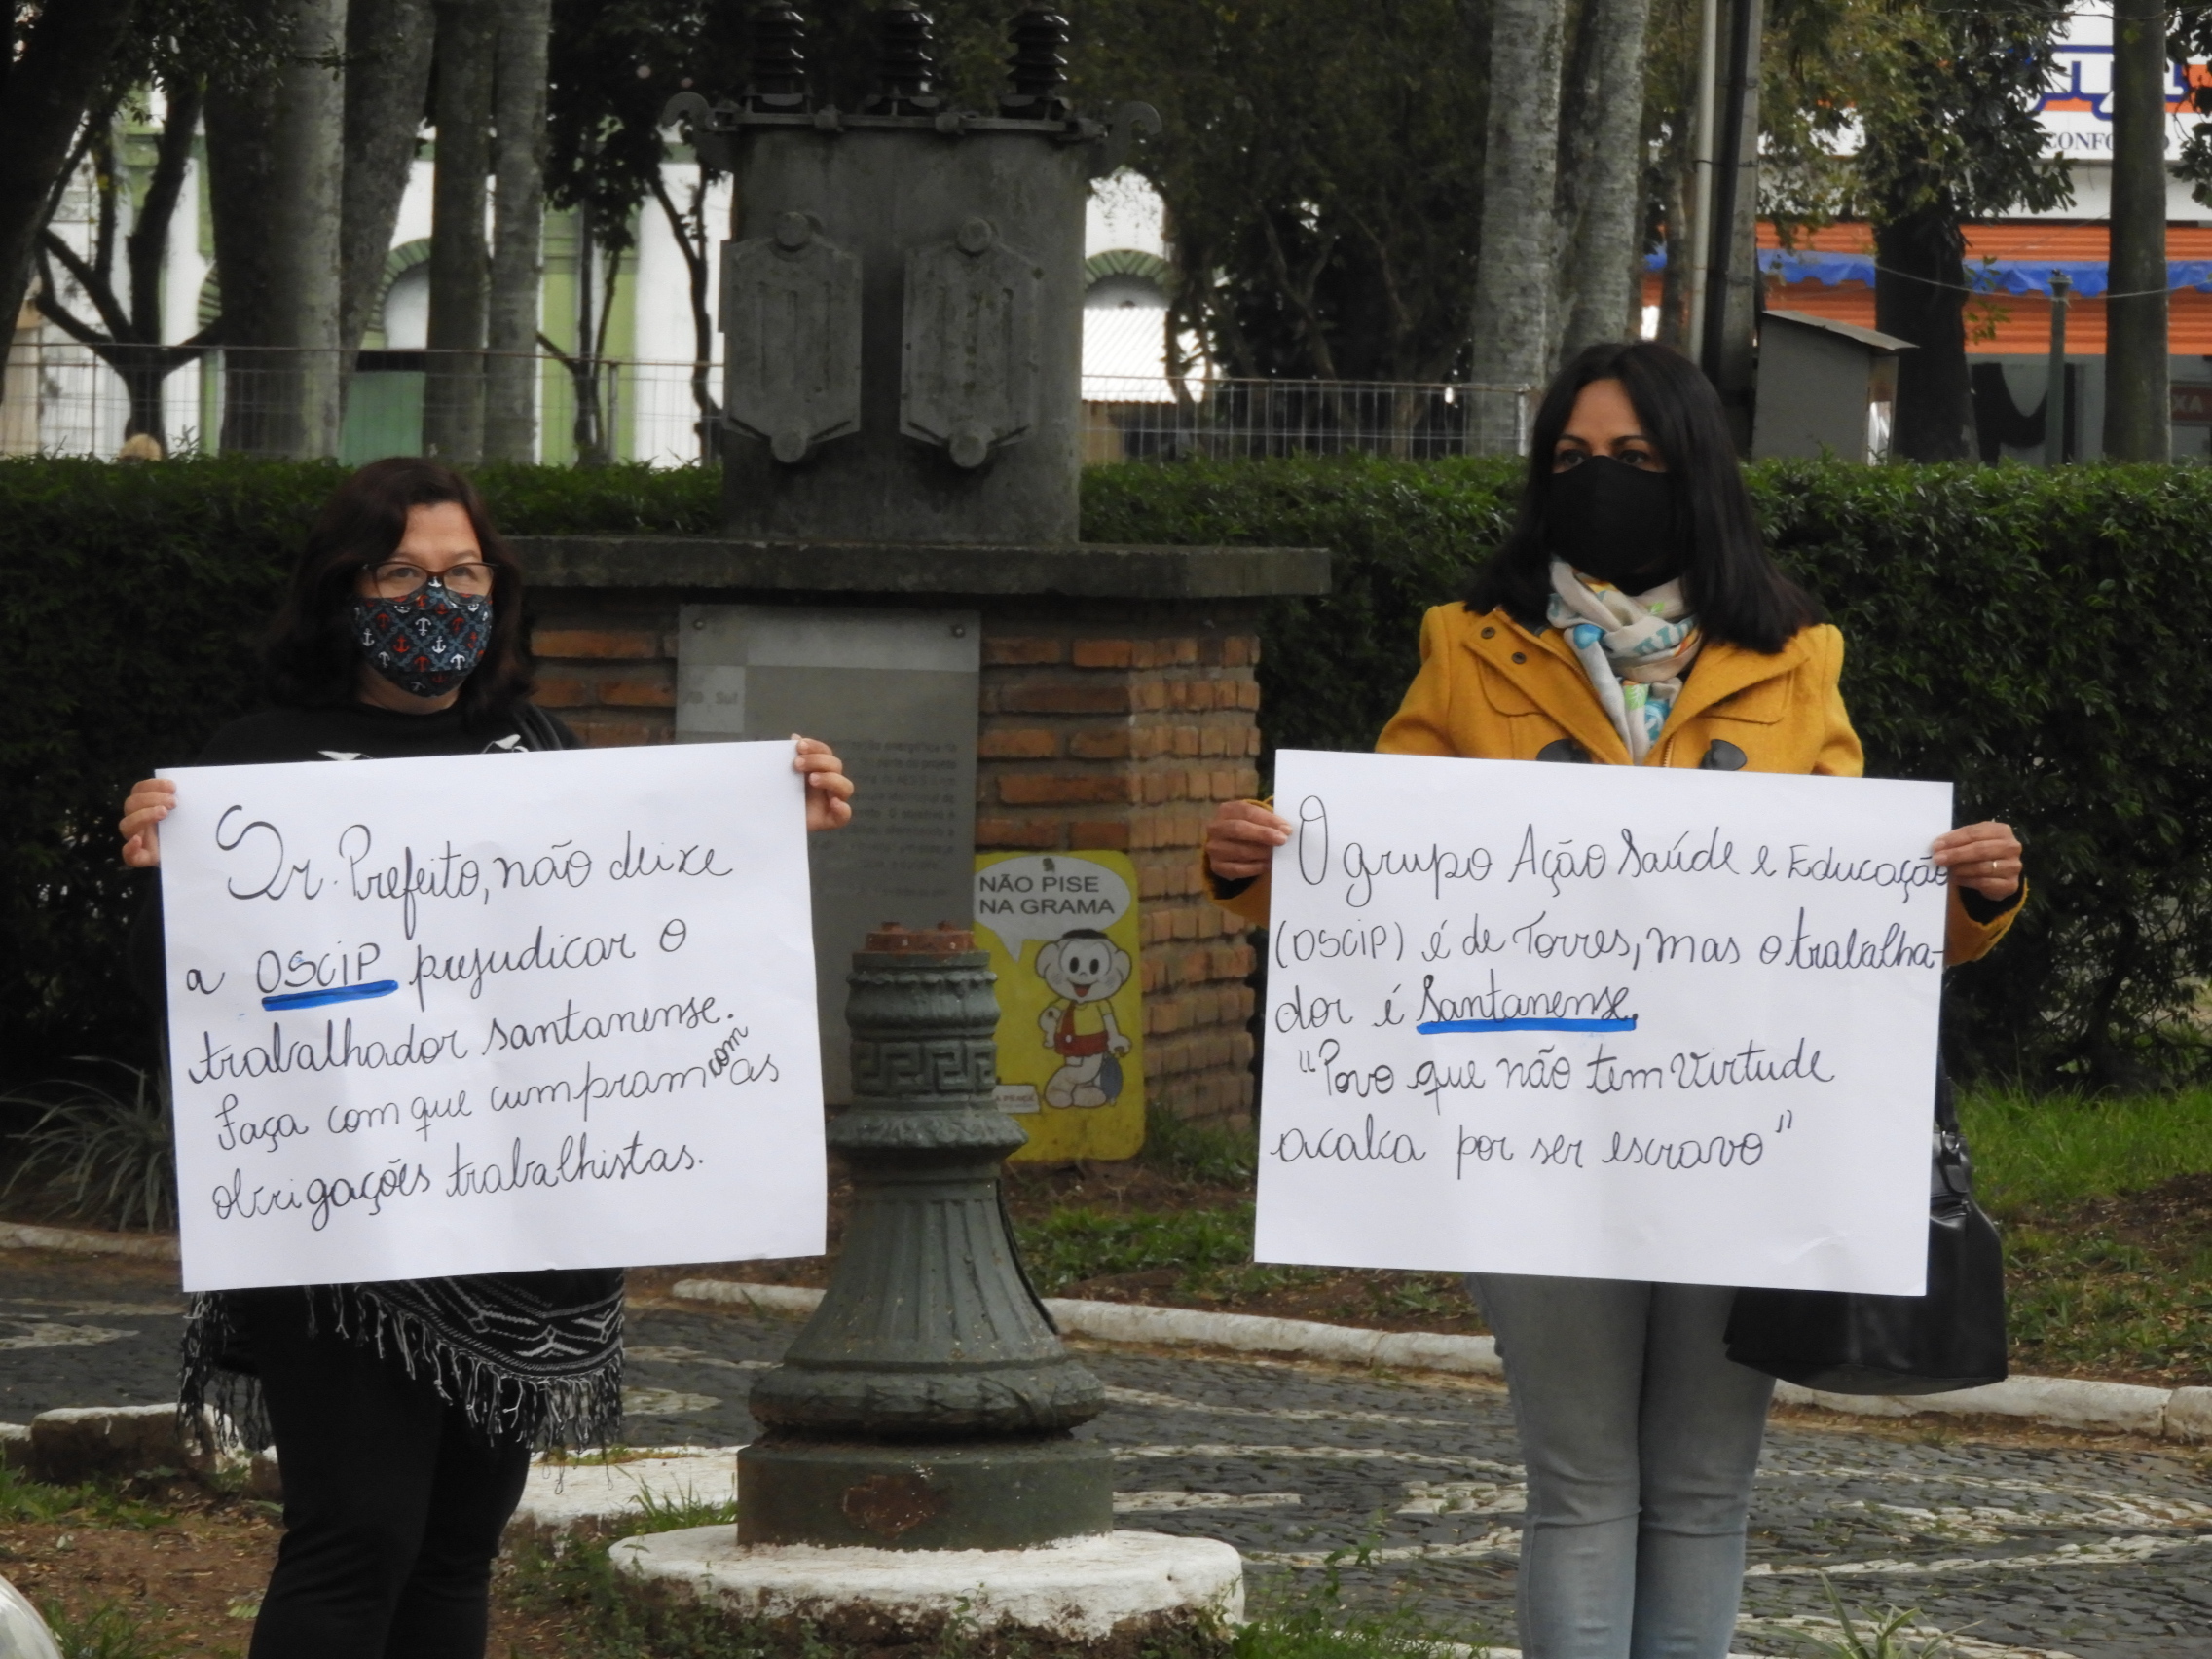 Sr. Prefeito, não deixe
a OSCIP prejudicar o
trabalhador santanense.
Faça com que cumpram com as
obrigações trabalhistas.
O grupo Ação Saúde e Educação
(OSCIP) é de Torres, mas o trabalha-
dor é Santanense.
"Povo que não tem virtude
acalca por ser escravo"
NÃO PISE
NA GRAMA